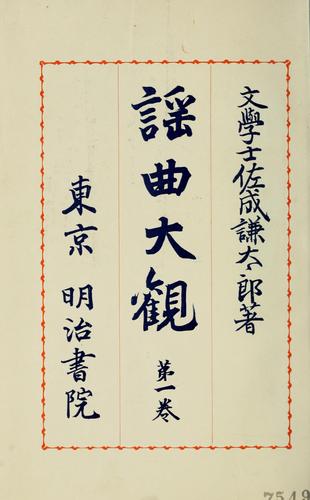 文學士佐成謙太郎著
謡曲大觀 第一卷
東京 明治書院
7549